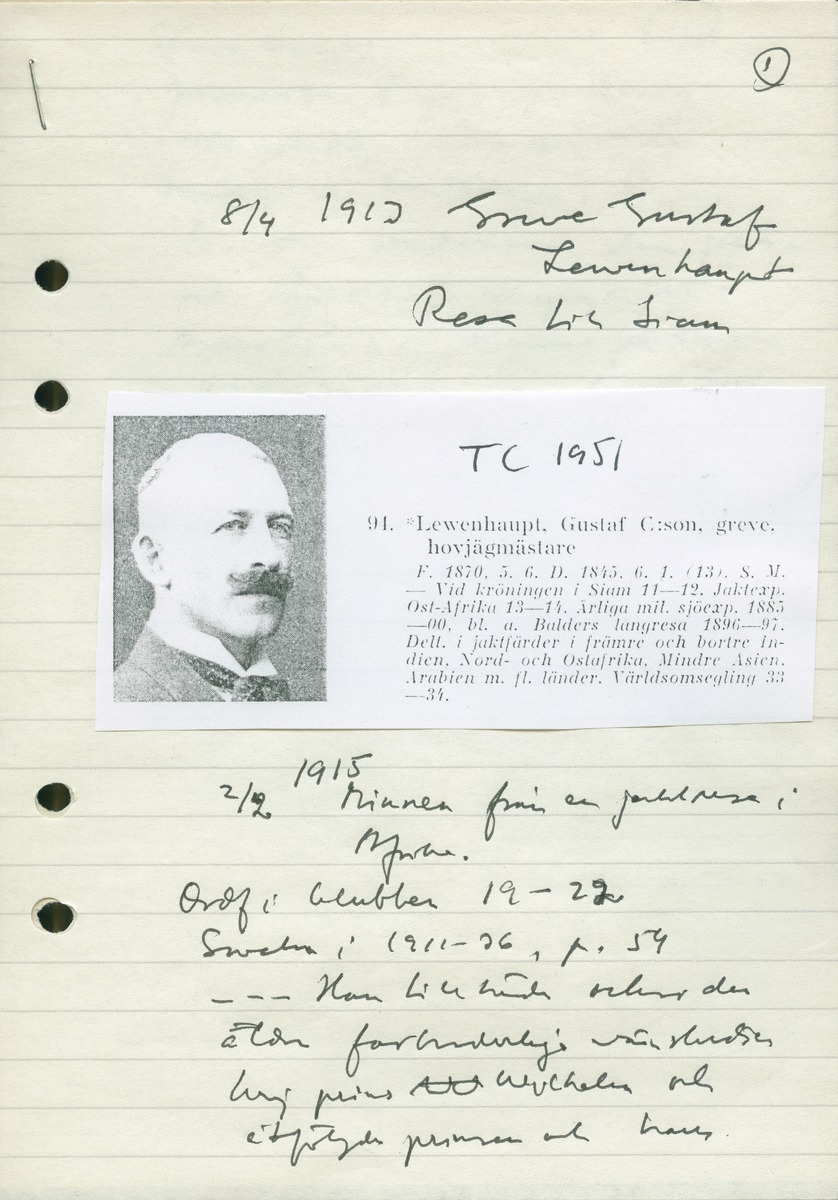 1
8/4 1913 Greve Gustaf
Lewenhaupt
Resa till Siam
TC 1951
91. *Lewenhaupt, Gustaf C:son, greve,
hovjägmästare
F. 1870. 5. 6. D. 1845. 6. 1. (13). S. M.
— Vid kröningen i Siam 11—12. Jaktexp.
Ost-Afrika 13—14. Årliga mil. sjöexp. 1885
—00, bl. a. Balders långresa 1896—97.
Delt. i jaktfärder i främre och bortre In-
dien, Nord- och Ostafrika, Mindre Asien,
Arabien m. fl. länder. Världsomsegling 33
—34.
1915
2/2 Minnen från en jaktresa i
Afrika.
Ordf i klubben 19-22
i 1911-36, p. 54
--- Han tillhörde den
äldre
prins Wilhelm och
åtföljde prinsen och hans